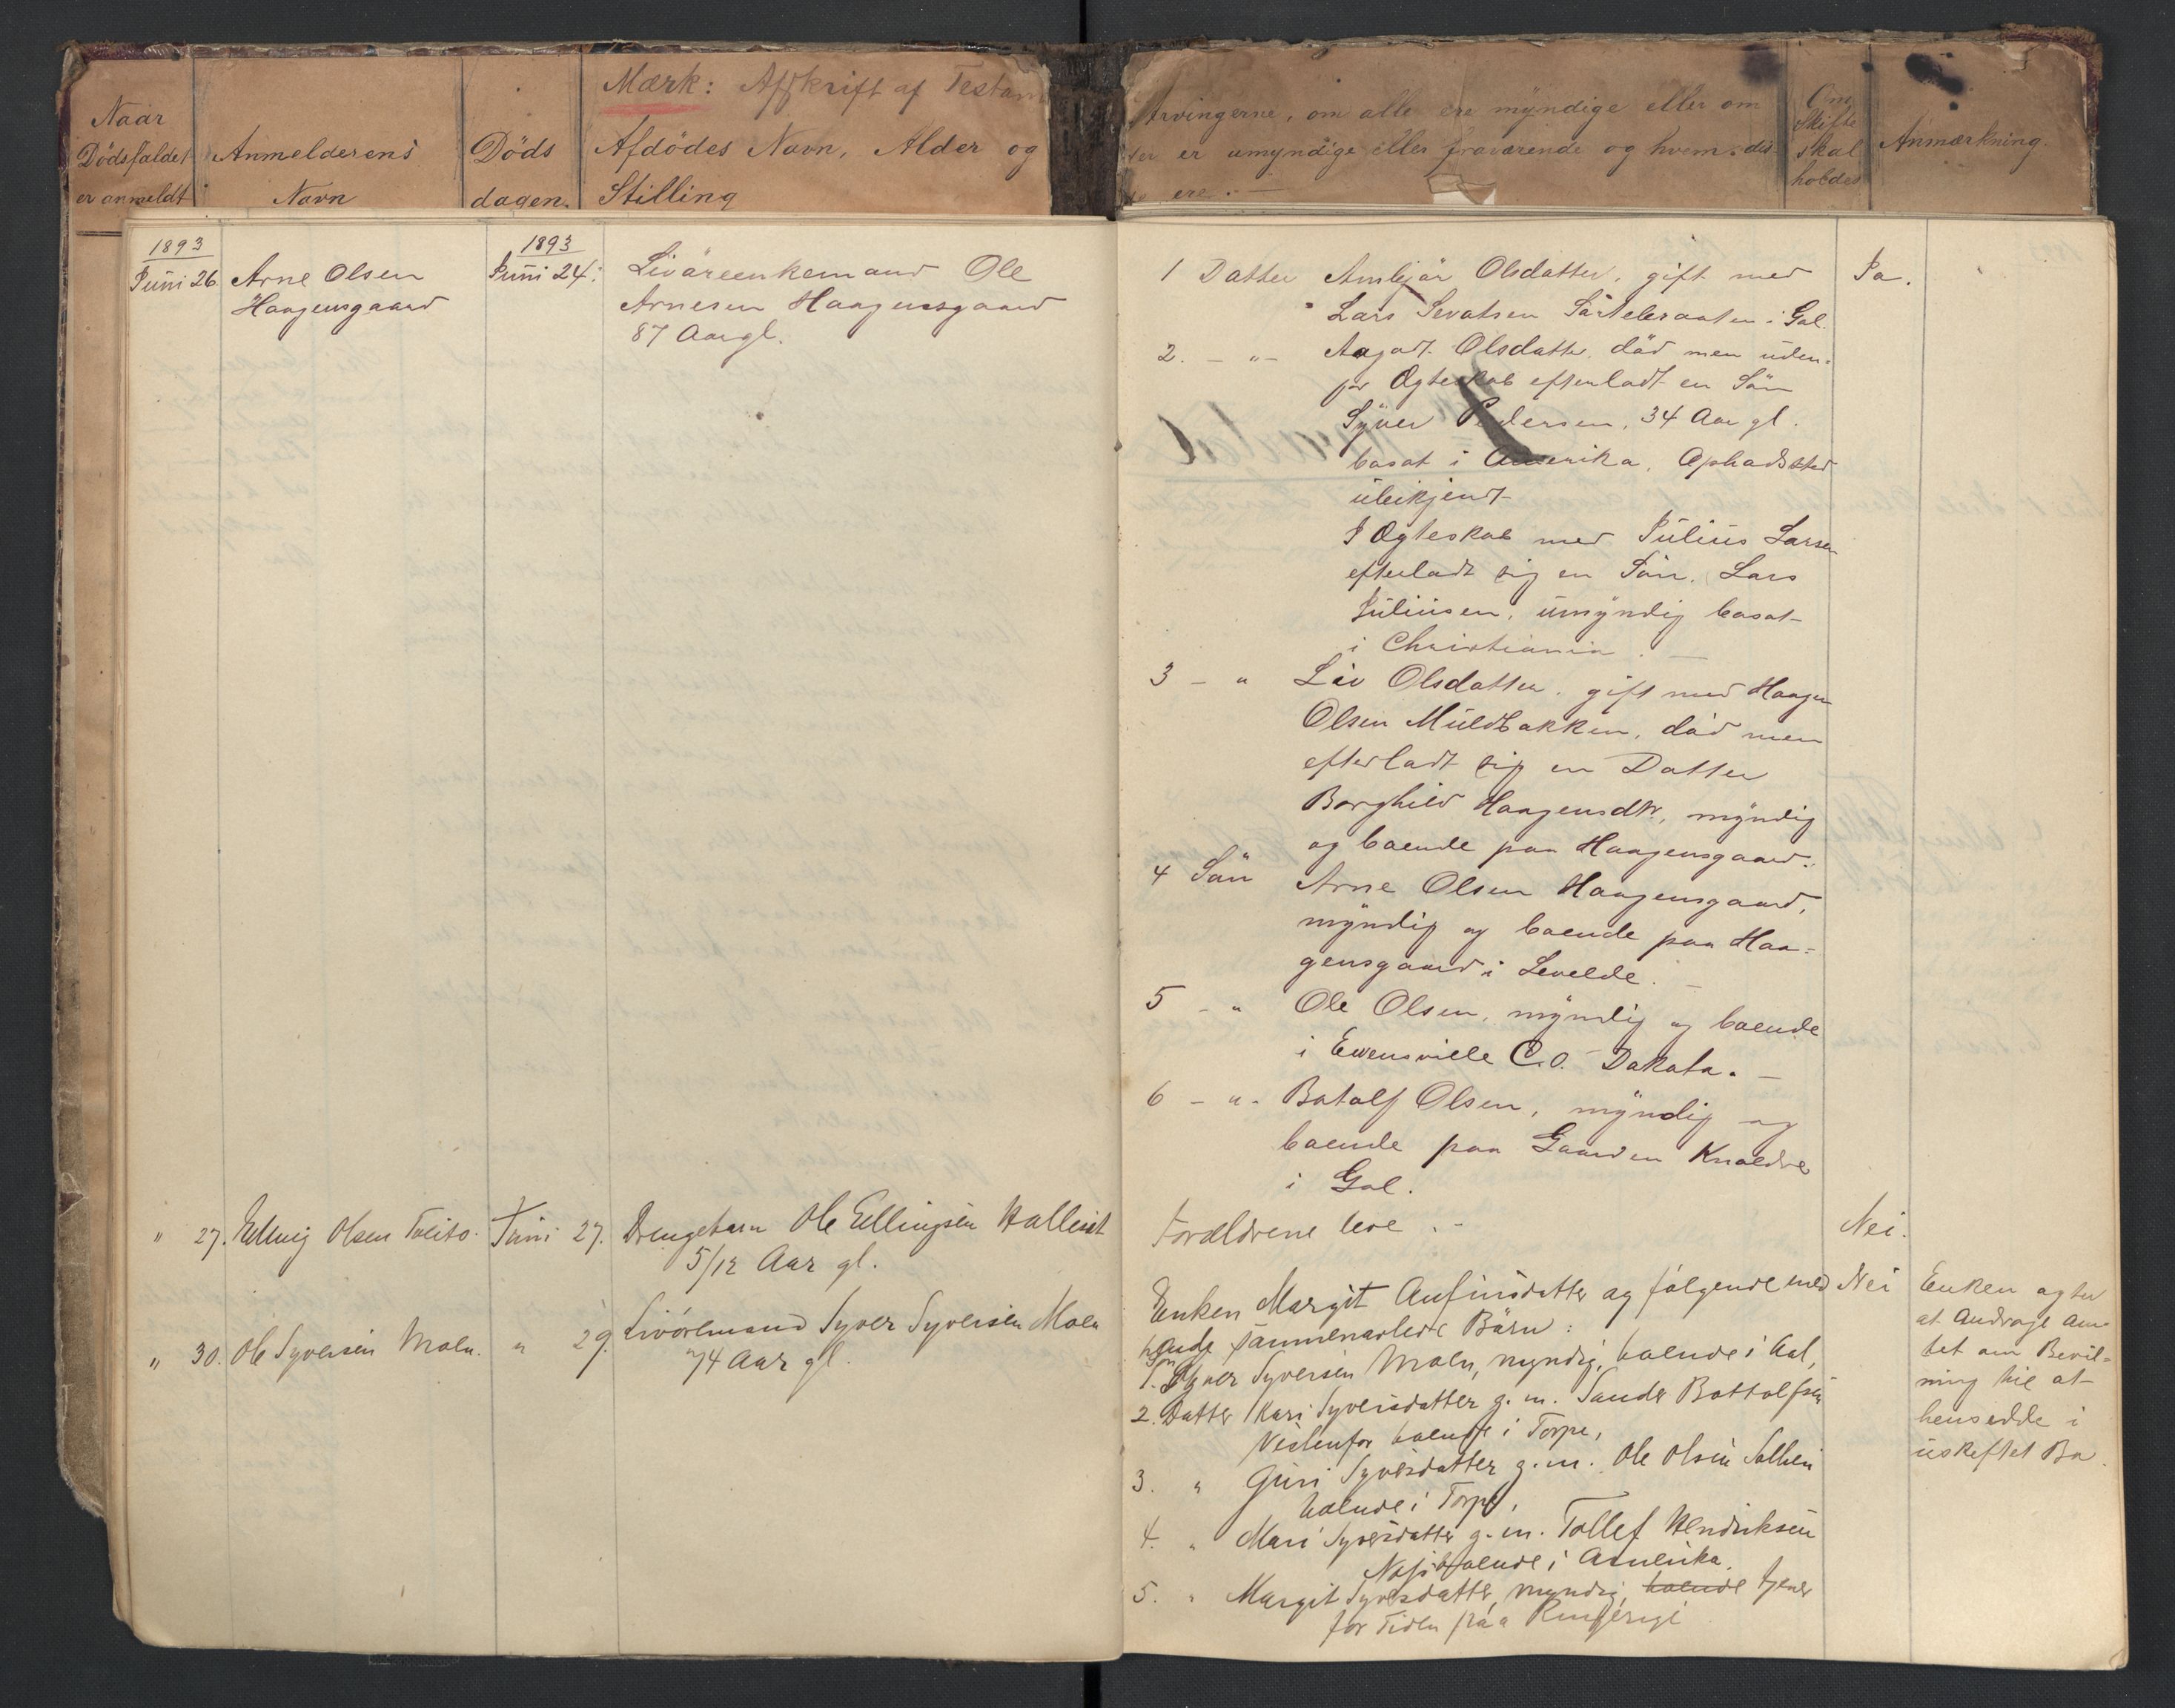 Mærk: Afskrift af Testam
Naar
Dödsfaldet
er anmeldt
Anmelderens
Navn
Döds
dagen.
Afdödes Navn, Alder og
Stilling
Arvingerne, om alle ere myndige eller om
er umyndige eller fraværende og hvem dis-
ere.
Om
Skifte
skal
holdes
Anmærkning.
1893
Juni 26.
Arne Olsen
Haagensgaard
1893
Juni 24.
Livöreenkemand Ole
Arnesen Haagensgaard
87 Aar gl.
1 Datter Ambjör Olsdatter, gift med
Lars Sevatsen i Gal.
Ja.
2. - " - Aagot Olsdatter, död men uden-
for Ægteskab efterladt en Sön
Syver Pedersen, 34 Aar gl.
bosat i Amerika, Opholdssted
übekjendt
I Ægteskab med Julius Larsen
efterladt sig en Sön, Lars
Juliusen, ümyndig bosat
i Christiania. -
3 - " Liv Olsdatter, gift med Haagen
Olsen Müldbakken, död men
efterladt sig en Datter
Borghild Haagensdtr, myndig
og boende paa Haagensgaard.
4 Sön Arne Olsen Haagensgaard,
myndig og boende paa Haa-
gensgaard i Levelde. -
5 - " Ole Olsen, myndig og boende
i Ewensville C.O. Dakota. -
6 - " - Botolf Olsen, myndig og
boende paa Gaarden Knoldre
i Gol.
" 27.
Elling Olsen
Juni 27.
Drengebarn Ole Ellingsen
5/12 Aar gl.
Forældrene leve. -
Nei.
" 30.
Ole Syversen Moen.
" 29.
Livöremand Syver Syversen Moen
74 Aar gl.
Enken Margit Anfinsdatter og fölgende med
hende sammenavlede Börn:
Nei
1. Sön Syver Syversen Moen, myndig, boende i Aal,
2. Datter Kari Syversdatter g. m. Sander Bottolfsen
Nedenfor boende i Torpe,
3. " Guri Syversdatter g. m. Ole Olsen
boende i Torpe,
4. " Mari Syversdatter g. m. Tollef Hendriksen
boende i Amerika.
5. " Margit Syversdatter, myndig, boende tjener
for Tiden paa Ringerige
Enken agter
at andrage Am-
tet om Bevil-
ning til at
hensidde i
uskiftet Bo.